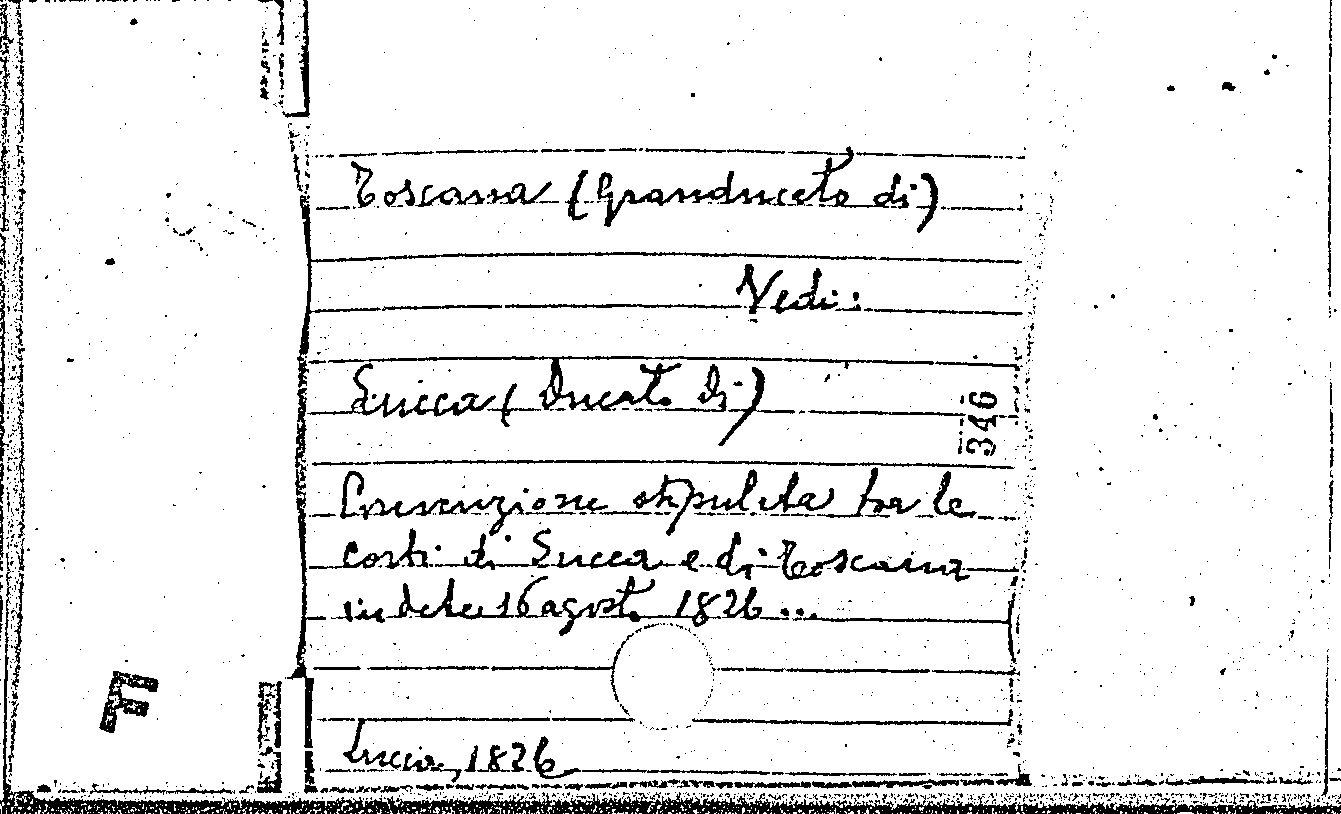 Toscana (Granducato di)
Vedi:
Lucca (Ducato di)
346
Convenzione stipulata tra le
corti di Lucca e di Toscana
in data 16 agosto 1826...
Lucca, 1826
F